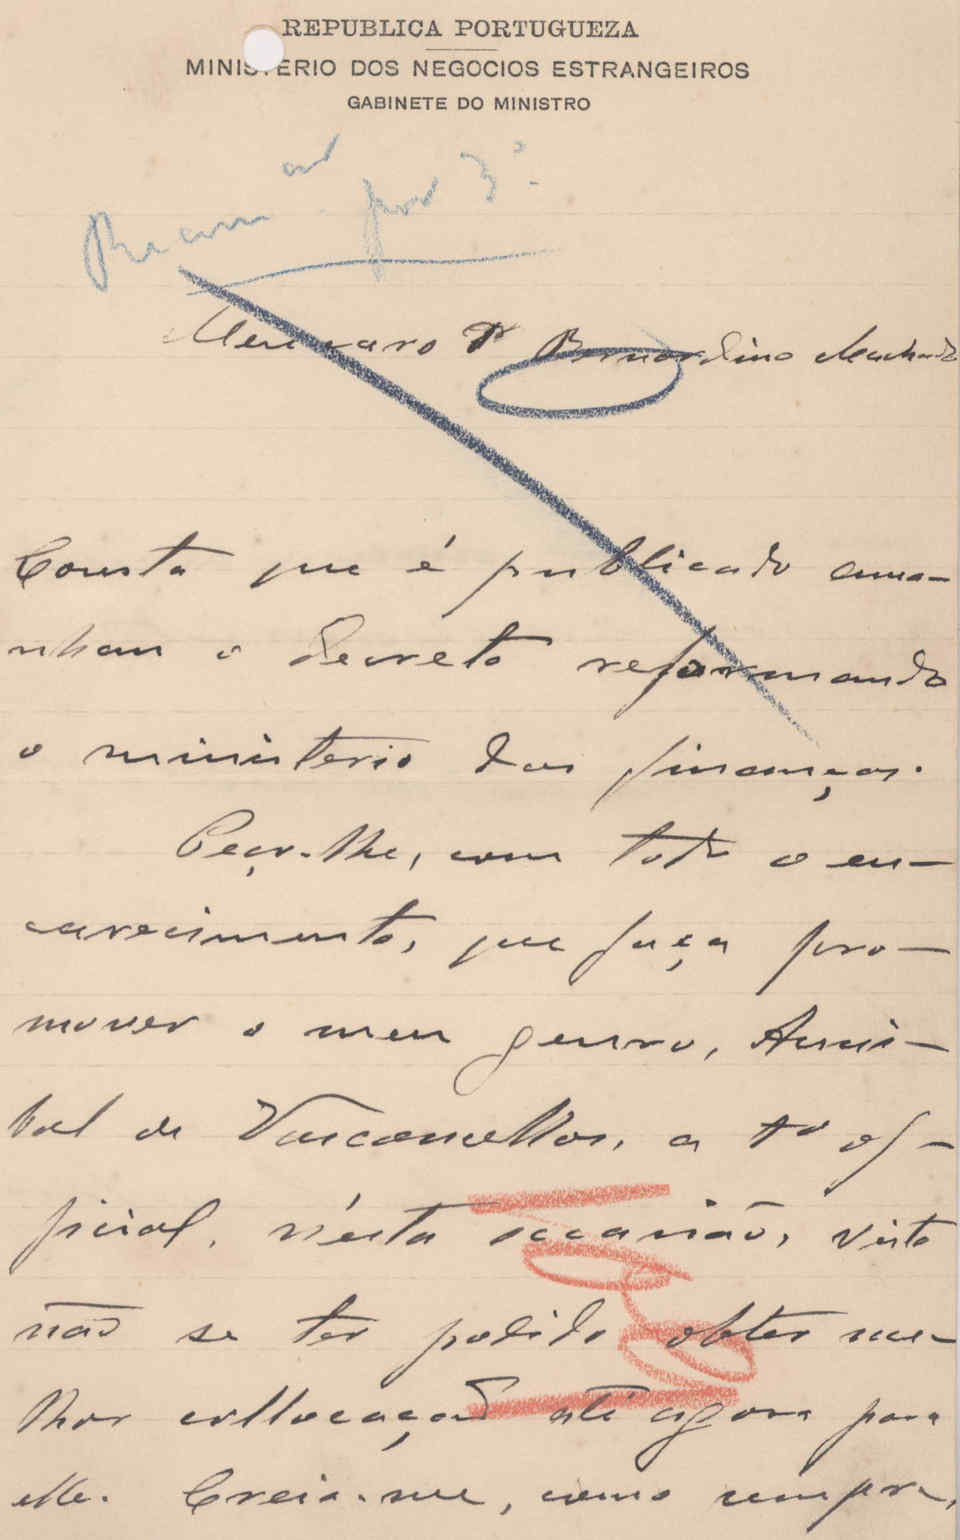 REPUBLICA PORTUGUEZA
MINISTERIO DOS NEGOCIOS ESTRANGEIROS
GABINETE DO MINISTRO
por 3º
Meu caro Dr Bernardino Machado
Consta que é publicado ama-
nhan o decreto reformando
o ministerio das finanças.
Peço-lhe, com todo o en-
carecimento, que faça pro-
mover o meu genro, Anni-
bal de Vasconcellos, a 1º of-
ficial, n'esta occasião, visto
não se ter podido obter me-
lhor collocação até agora para
elle. Creia-me, como sempre,